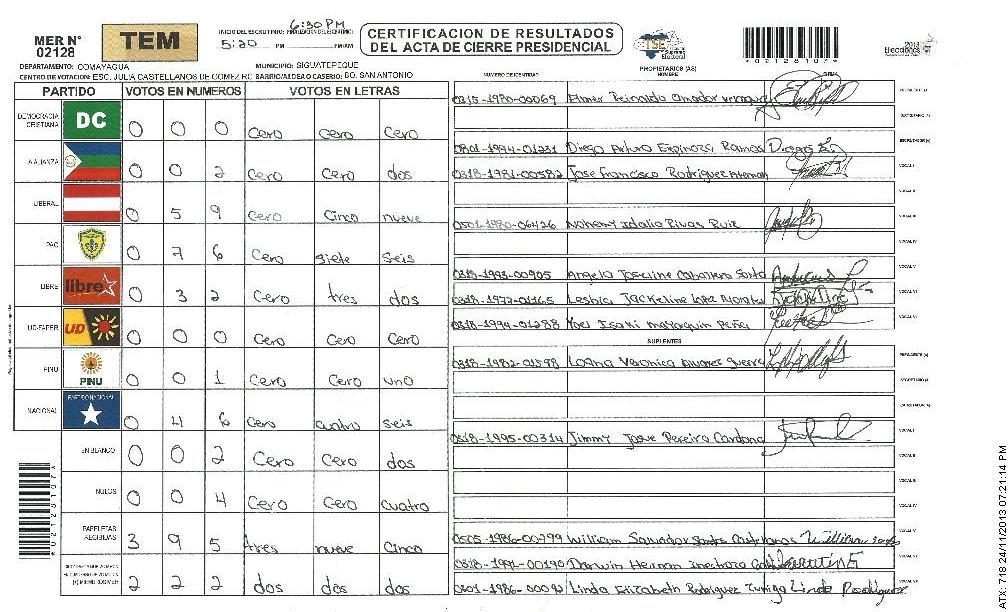 MER N° 02128
TEM
INICIO DEL ESCRUTINIO: 5:20 PM
6:30 PM
CERTIFICACION DE RESULTADOS
DEL ACTA DE CIERRE PRESIDENCIAL
TSE
Tribunal Supremo Electoral
*02128107*
2013
Elecciones
DEPARTAMENTO: COMAYAGUA MUNICIPIO: SIGUATEPEQUE
CENTRO DE VOTACION: ESC. JULIA CASTELLANOS DE GOMEZ RC BARRIO/ALDEA O CASERIO: BO. SAN ANTONIO
PROPIETARIOS (AS)
NUMERO DE IDENTIDAD NOMBRE FIRMA
PARTIDO VOTOS EN NUMEROS VOTOS EN LETRAS
DEMOCRACIA CRISTIANA DC 0 0 0 Cero Cero Cero
ALIANZA 0 0 2 Cero Cero dos
LIBERAL 0 5 9 Cero Cinco nueve
PAC 0 7 6 Cero siete seis
LIBRE libre 0 3 2 Cero tres dos
UD-FAPER UD 0 0 0 Cero Cero Cero
PINU PINU 0 0 1 Cero Cero uno
NACIONAL PARTIDO NACIONAL 0 4 6 Cero cuatro seis
EN BLANCO 0 0 2 Cero Cero dos
NULOS 0 0 4 Cero Cero cuatro
PAPELETAS RECIBIDAS 3 9 5 tres nueve Cinco
2 2 2 dos dos dos
0315-1980-00069 Elmer Reinaldo Amador PRESIDENTE (A)
SECRETARIO (A)
0801-1994-01231 Diego Arturo Espinoza Ramos Diego E. ESCRUTADOR (A)
0318-1981-00582 Jose Francisco Rodriguez VOCAL I
VOCAL II
0501-1980-06426 Nohemy Idalia Rivas Ruiz VOCAL III
VOCAL IV
0318-1993-00905 Angela Joseline Caballero VOCAL V
0318-1977-01165 Lesbia Jackeline Lopez VOCAL VI
0318-1994-01288 Yoel Isaki Peña VOCAL VII
SUPLENTES
0318-1982-01598 Veronica Alvarez PRESIDENTE (A)
SECRETARIO (A)
ESCRUTADOR (A)
0318-1995-00314 Jimmy Josue Pereira Cardona VOCAL I
VOCAL II
VOCAL III
VOCAL IV
0505-1986-00799 William Salvador VOCAL V
0318-1991-00190 Darwin Hernan VOCAL VI
Linda Elizabeth Rodriguez Zuniga Linda Rodriguez VOCAL VII
*02128107*
ATX: 718 24/11/2013 07:21:14 PM